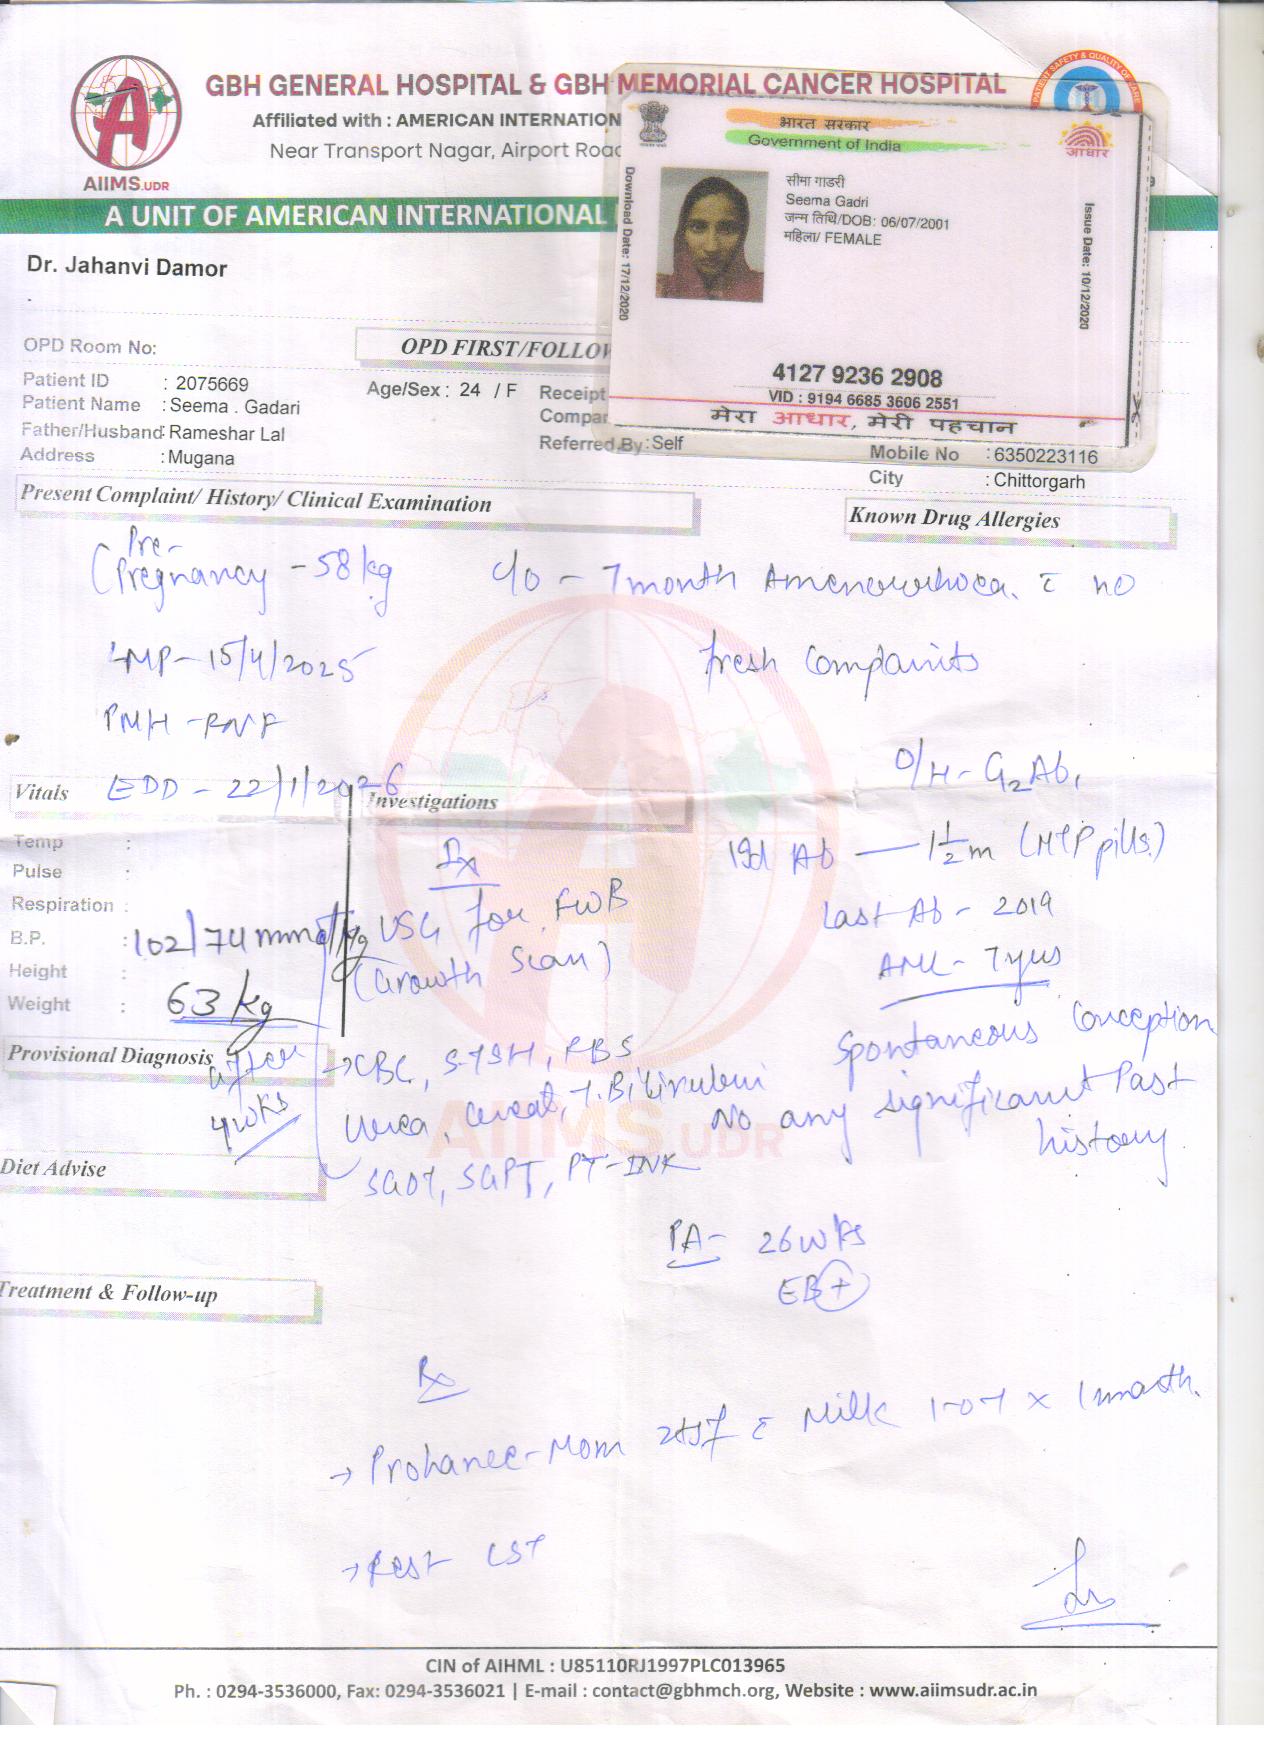 GBH GENERAL HOSPITAL & GBH MEMORIAL CANCER HOSPITAL
Affiliated with : AMERICAN INTERNATION
Near Transport Nagar, Airport Road
AIIMS.UDR
A UNIT OF AMERICAN INTERNATIONAL
PATIENT SAFETY & QUALITY OF CARE
भारत सरकार
Government of India
आधार
Download Date: 17/12/2020
सीमा गाडरी
Seema Gadri
जन्म तिथि/DOB: 06/07/2001
महिला/ FEMALE
Issue Date: 10/12/2020
4127 9236 2908
VID : 9194 6685 3606 2551
मेरा आधार, मेरी पहचान
Dr. Jahanvi Damor
OPD Room No:
OPD FIRST/FOLLO
Patient ID : 2075669
Age/Sex : 24 / F
Receipt
Patient Name : Seema . Gadari
Compar
Father/Husband: Rameshar Lal
Referred By : Self
Mobile No : 6350223116
Address : Mugana
City : Chittorgarh
Present Complaint/ History/ Clinical Examination
Known Drug Allergies
Pre-
Pregnancy - 58 kg
c/o - 7 month Amenorrhoea. c no
fresh complaints
LMP - 15/4/2025
PMH - RNF
EDD - 22/1/2026
O/H - G2 Ab1
Vitals
Investigations
Temp :
Pulse :
Respiration :
B.P. : 102/74 mmHg
Height :
Weight : 63 kg
after
4 wks
Ix
USG for FWB
(Growth Scan)
→ CBC, S.TSH, RBS
Urea, Creat, T. Bilirubin
SGOT, SGPT, PT-INR
Ist Ab — 1 1/2 m (MTP pills)
Last Ab - 2019
AML - 7 yrs
Spontaneous Conception
No any significant Past
history.
Provisional Diagnosis
Diet Advise
PA - 26 wks
EB +
Treatment & Follow-up
Rx
→ Prohance-Mom 2tsf c Milk 1-0-1 x 1 month.
→ Rest CST
AIIMS.UDR
CIN of AIHML : U85110RJ1997PLC013965
Ph. : 0294-3536000, Fax: 0294-3536021 | E-mail : contact@gbhmch.org, Website : www.aiimsudr.ac.in